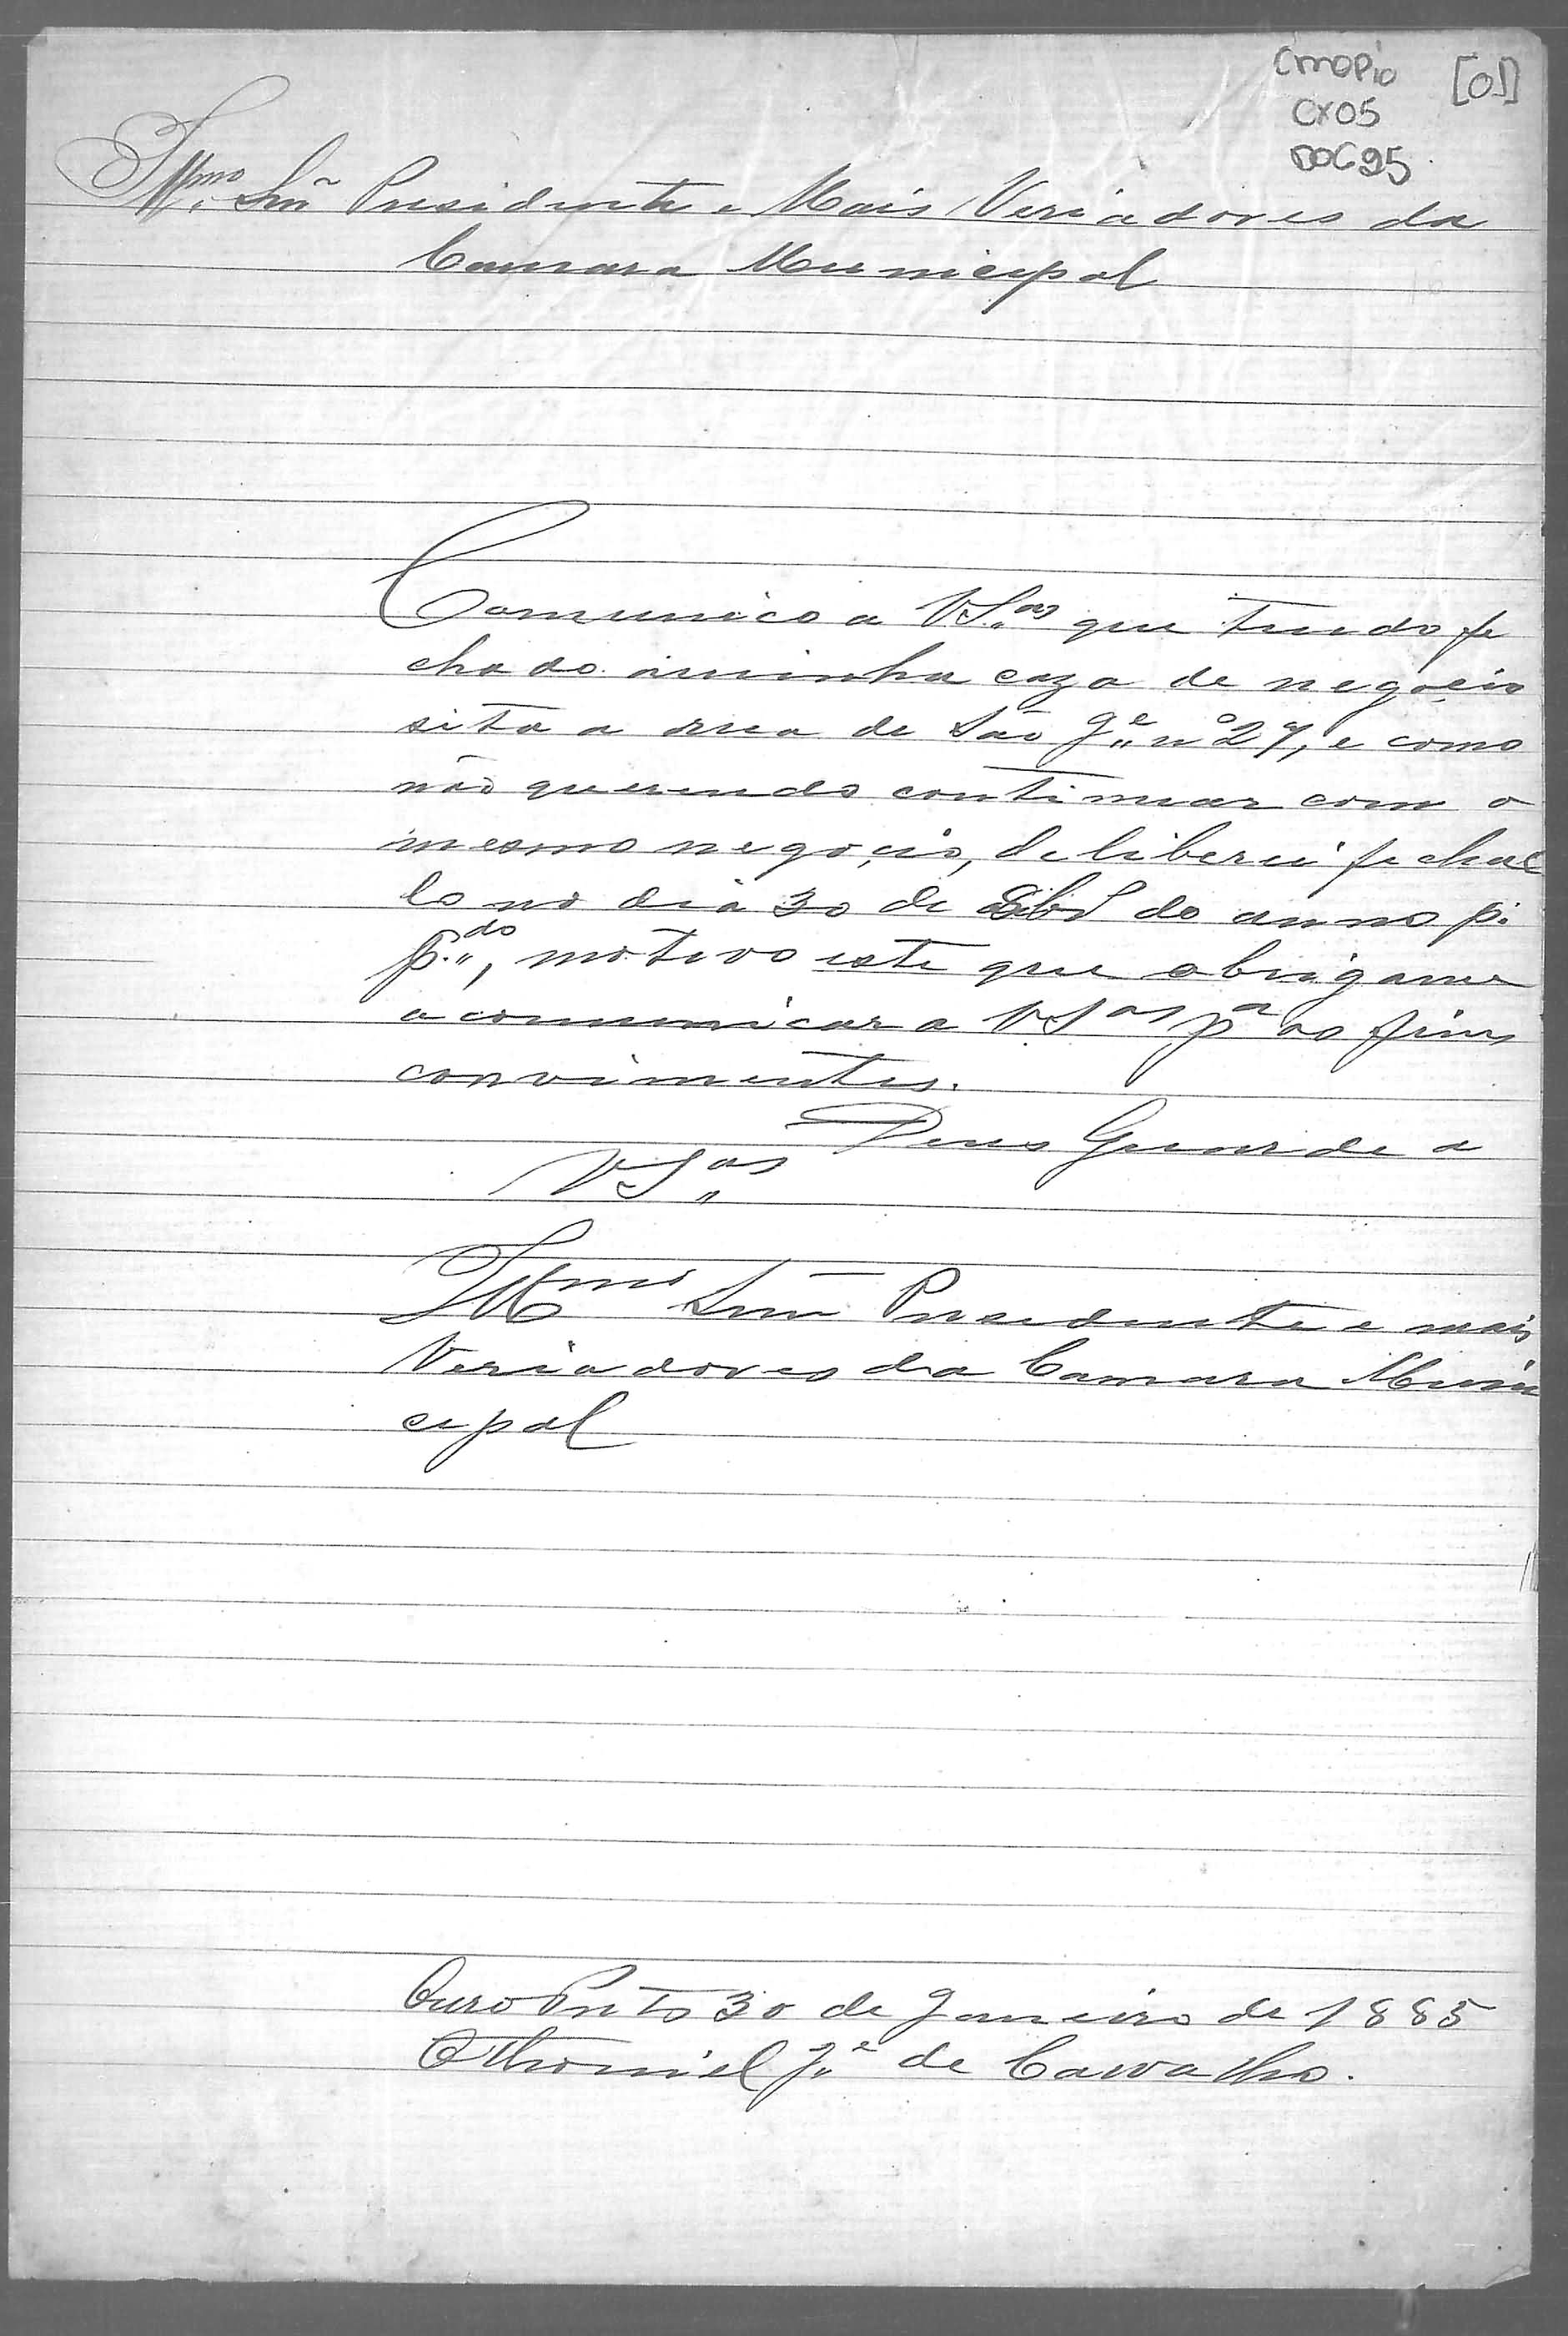 CMOP io [01]
CX05
DOC 95
Illmo Snr Presidente e Mais Veriadores da
Camara Municipal
Comunico a VSas que tendo fe
chado a minha caza de negocio
sita a rua de São Je no 27, e como
não querendo continuar com o
mesmo negocio, deliberei fechal
lo no dia 30 de do anno p.
p.do, motivo este que obrigame
a comunicar a VSas pa os fins
convinientes.
Deus Guarde a
VSas
Illmo Snr Presidente e mais
Veriadores da Camara Muni
cipal
Ouro Preto 30 de Janeiro de 1885
Othoniel Je de Carvalho.